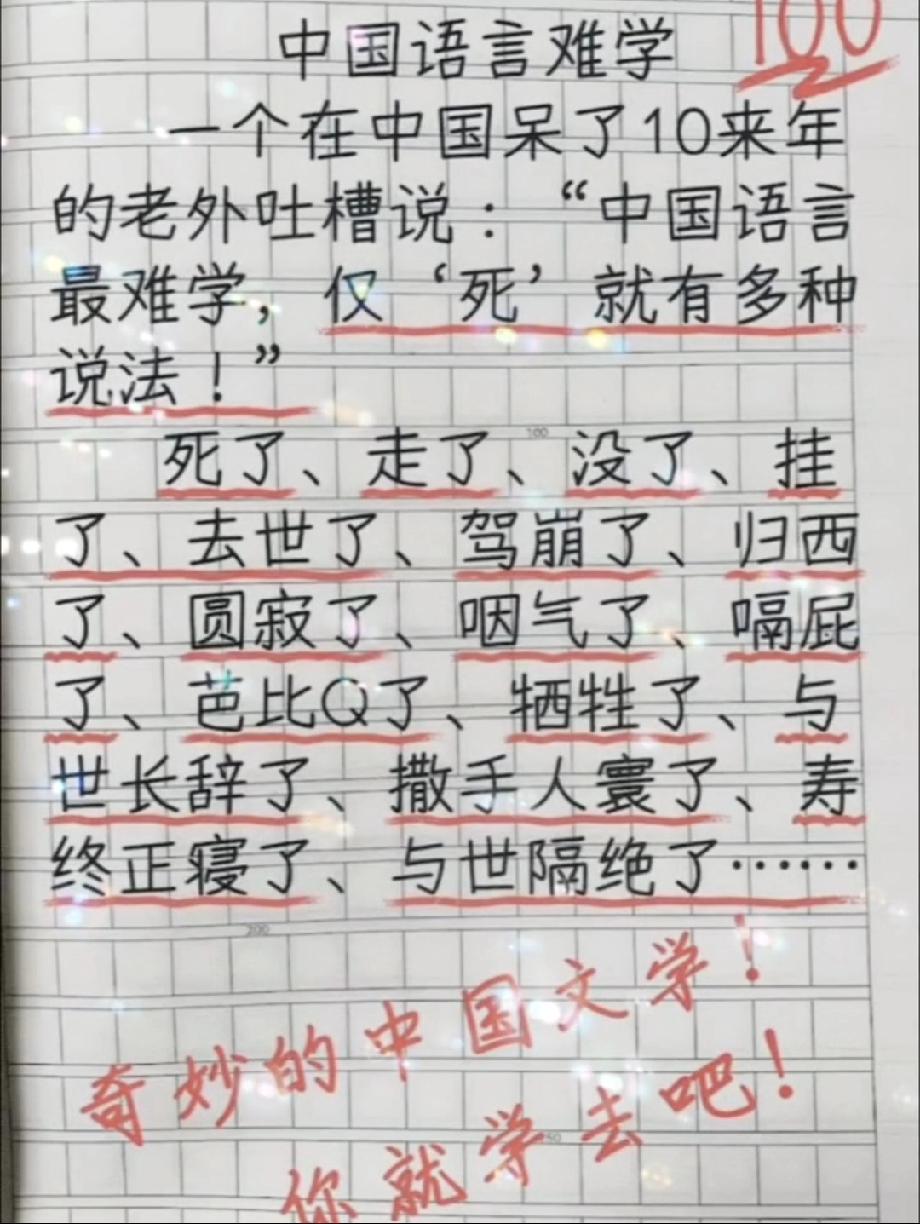 中国语言难学
100
一个在中国呆了10来年
的老外吐槽说：“中国语言
最难学，仅‘死’就有多种
说法！”
100
死了、走了、没了、挂
了、去世了、驾崩了、归西
了、圆寂了、咽气了、嗝屁
了、芭比Q了、牺牲了、与
世长辞了、撒手人寰了、寿
终正寝了、与世隔绝了……
200
奇妙的中国文学！
你就学去吧！